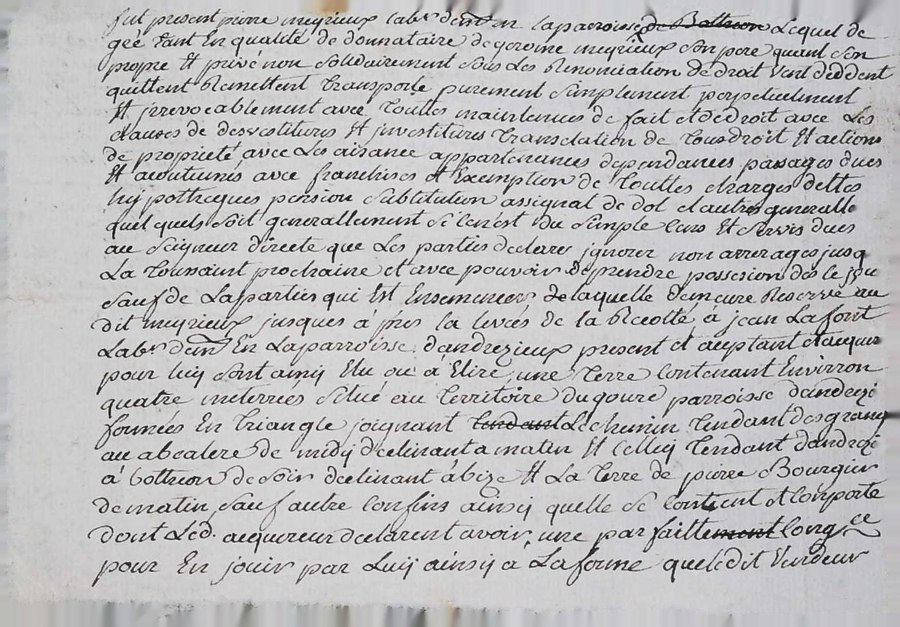 fut present pierre meyrieux lab.r dem.nt en laparroisse de Bothéon Lequel de
gré tant En qualité de donnataire de gerome meyrieux son pere quant Son
propre Et privé non Solidairement Sous Les Renonciation de droit vent Cedde
quitte Remettent transporte purement Simplement perpetuelment
Et jrrevocablement avec touttes maintenues de fait et de droit avec Les
clauses de desvestitures Et jnvestitures translation de tous droit Et actions
de proprieté avec Les aisance appartenances dependances passages dues
Et acoutumés avec franchises et Exemption de touttes charges dettes
hijpotheques pension Substitution assignat de dot et autres generalle
quelquels soit generallement Si Cen'est du Simple Cens Et Servis dues
au Seigneur directe que Les parties declares jgnorer non arrerages jusq
La toussaint prochaine et avec pouvoir de prendre possesion des le jou
Sauf de Laparties qui Est Ensemencées de laquelle demeure Reservé au
dit meyrieux jusques à la levés de la Recolté à jean Lafont
Lab.r dem.nt En Laparroisse d'andrezieux present et aceptant et acquer
pour luij Sont amij Elu ou a Elire, une terre Contenant Environ
quatre meterées Situé au territoire du goure parroisse dandrezi
formées En triangle joignant tendant Le chemin tendant des grang
au de midij declinant a matin Et Celluij tendant dandrezi
à bothéon de Soir declinant à bize Et La terre de pierre Bourgier
de matin, Sauf autre Confins ainsij quelle Se Contient et Comporte
dont Led. acquereur declarent avoir une parfaittement Cong.ce
pour En jouir par Luij ainsij a La forme queledit vendeur